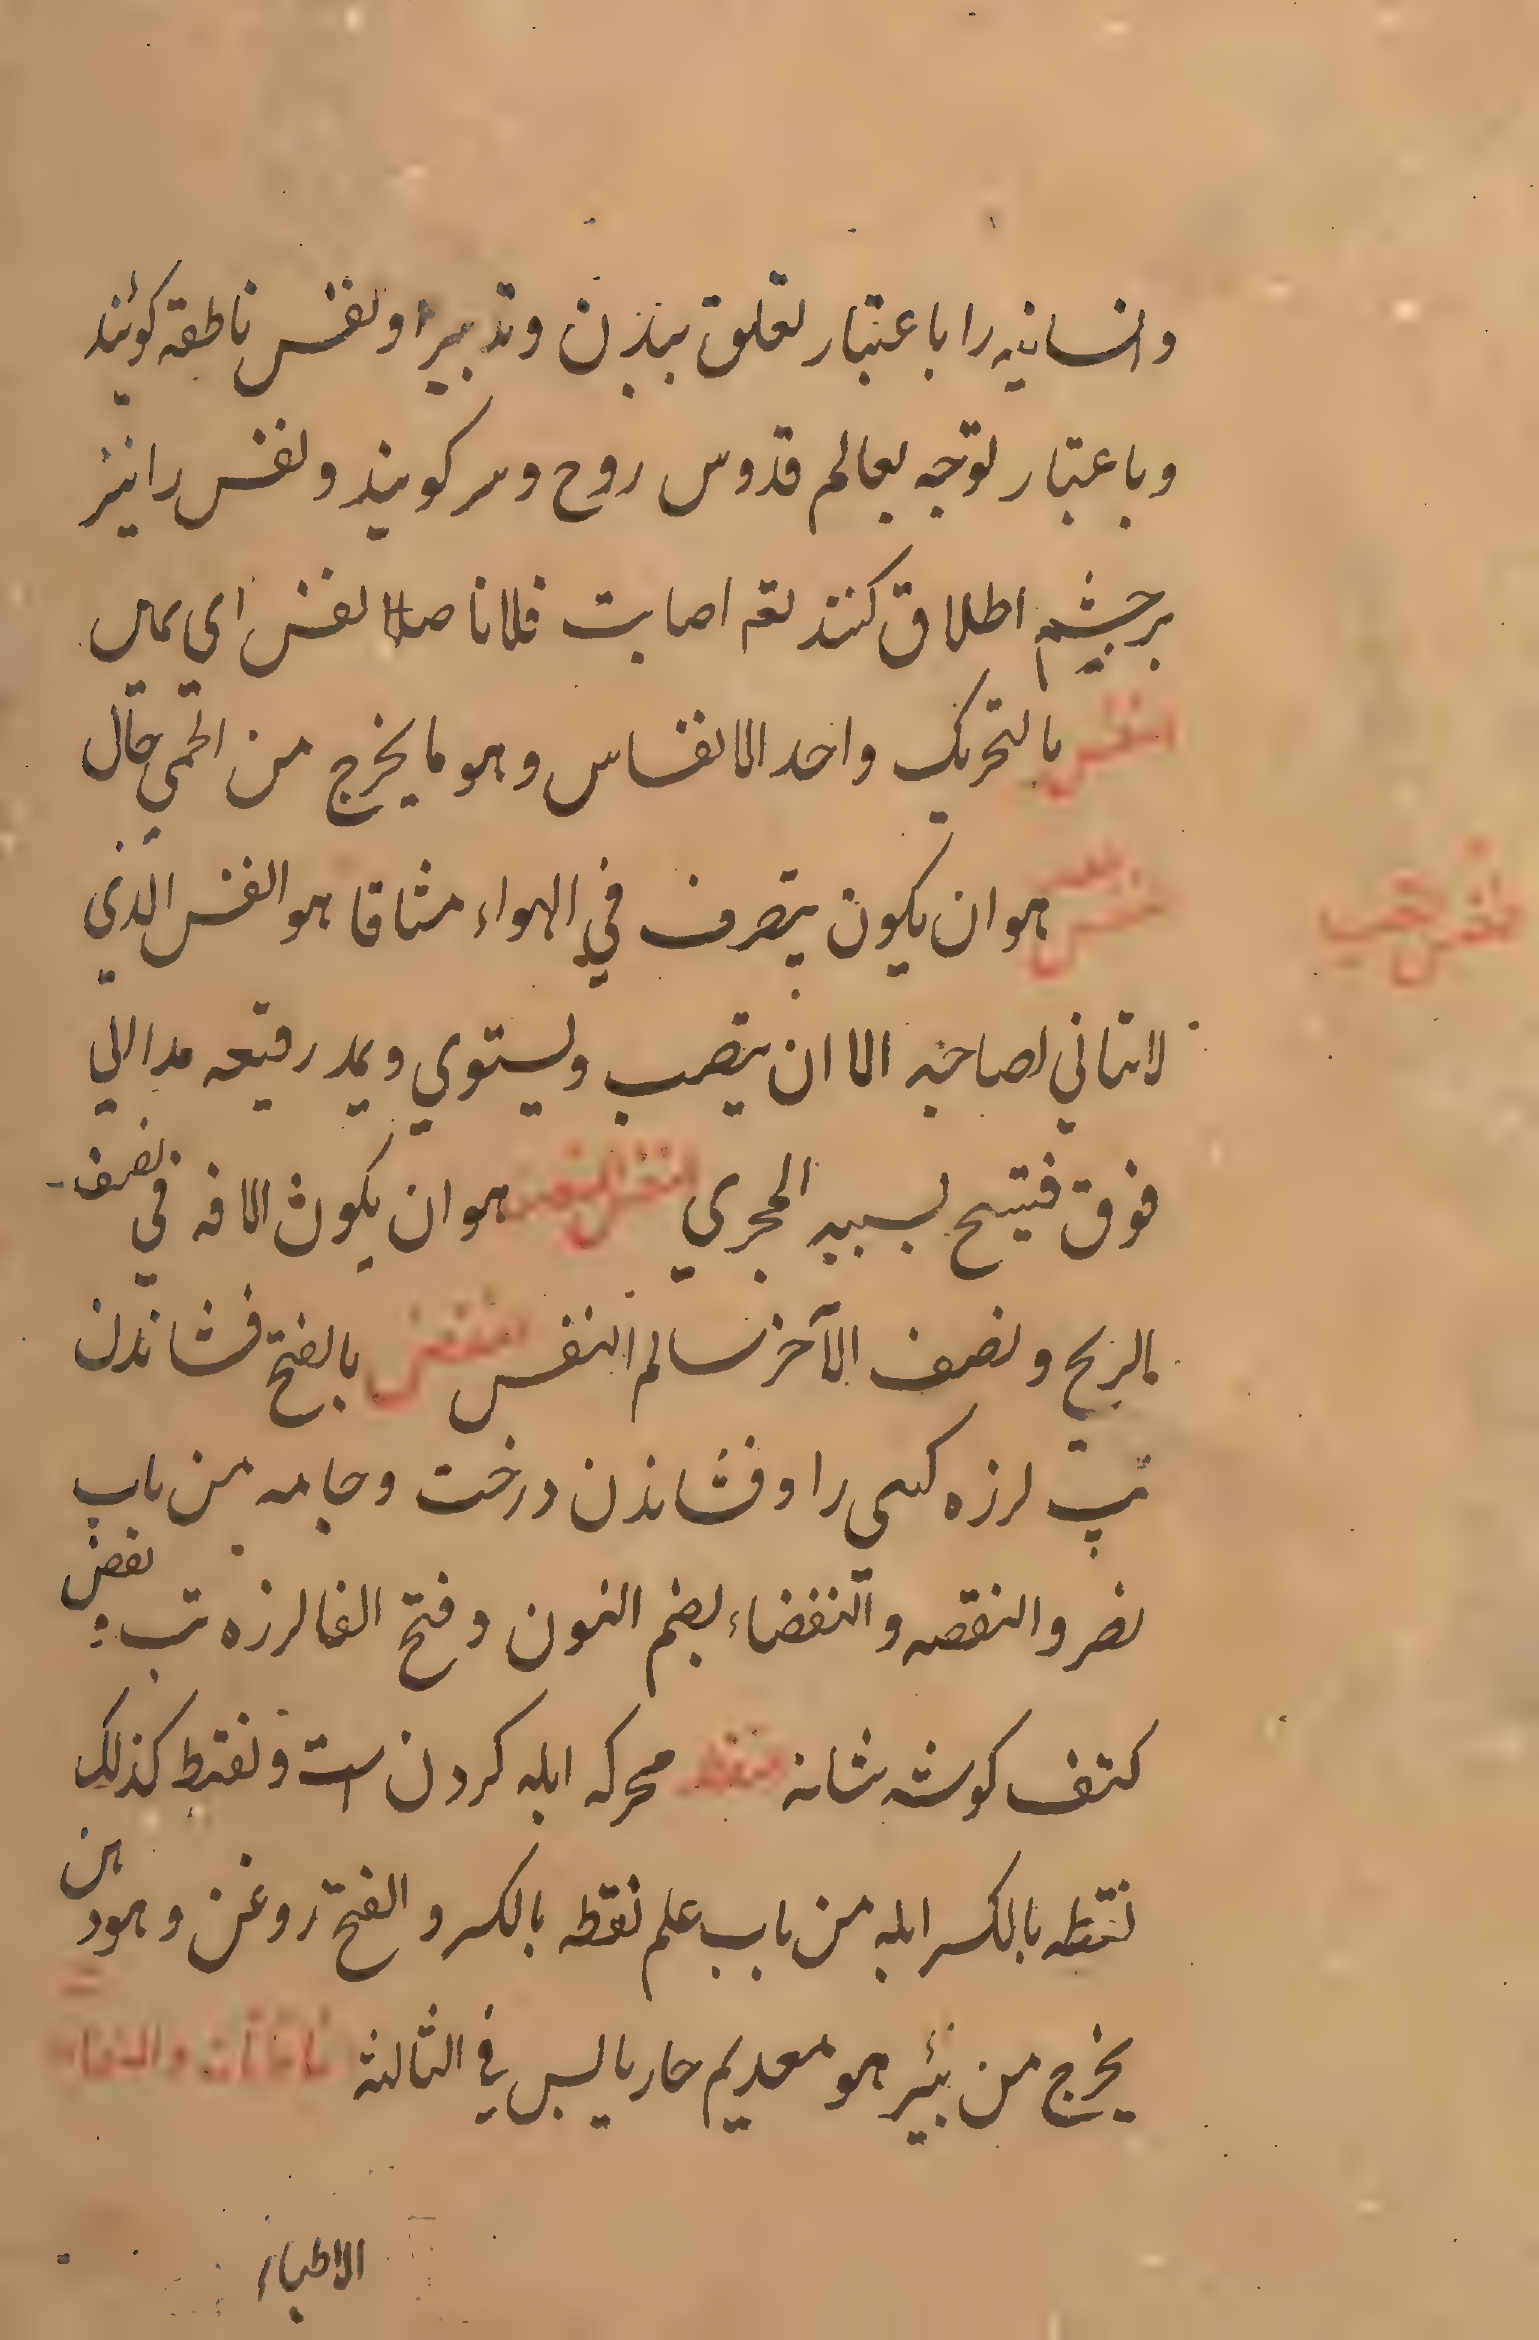 وانسانیه را باعتبار تعلق ببدن وتدبیر او نفس ناطقه کویند
وباعتبار توجه بعالم قدوس روح وسر کویند ونفس را نیز
برچشم اطلاق کنند یقه اصابت فلانا نفس ای
النفس بالتحریک واحد الانفاس وهو ما یخرج من الحی حال
هو ان یکون یتصرف في الهواء مشاقا هو النفس الذي
نفس
لاتتاني لصاحبه الا ان ینتصب ویستوي ویمد رقبته مدا الي
فوق فیتسح بسببه المجري النفس هو ان یکون الافه في نصف
الریح ونصف الآخر سالم النفس النفض بالفتح فشاندن
تپ لرزه کسی را وفشاندن درخت وجامه من باب
نصر والنفضه والنفضاء بضم النون وفتح الفا لرزه تب ونغض
کتف کوشه شانه نفط محرکه ابله کردن است ونفیط کذلک
نفطه بالکسر ابله من باب علم نفطه بالکسر والفتح روغن وهو دهن
یخرج من بئر هو معدیم حار یابس في الثالثة
الاطباء